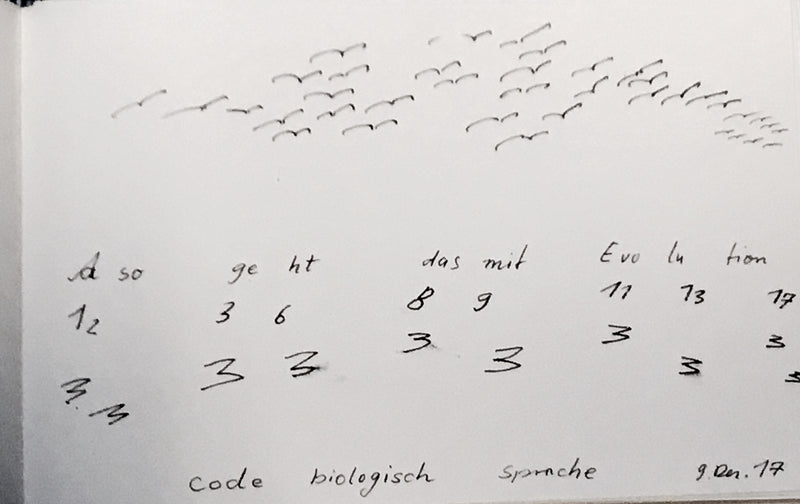 so ge ht das mit Evo lu tion
12 3 6 8 9 11 13 17
3 3 3
3 3 3 3 3
3 3
code biologisch sprache 9. Dez. 17